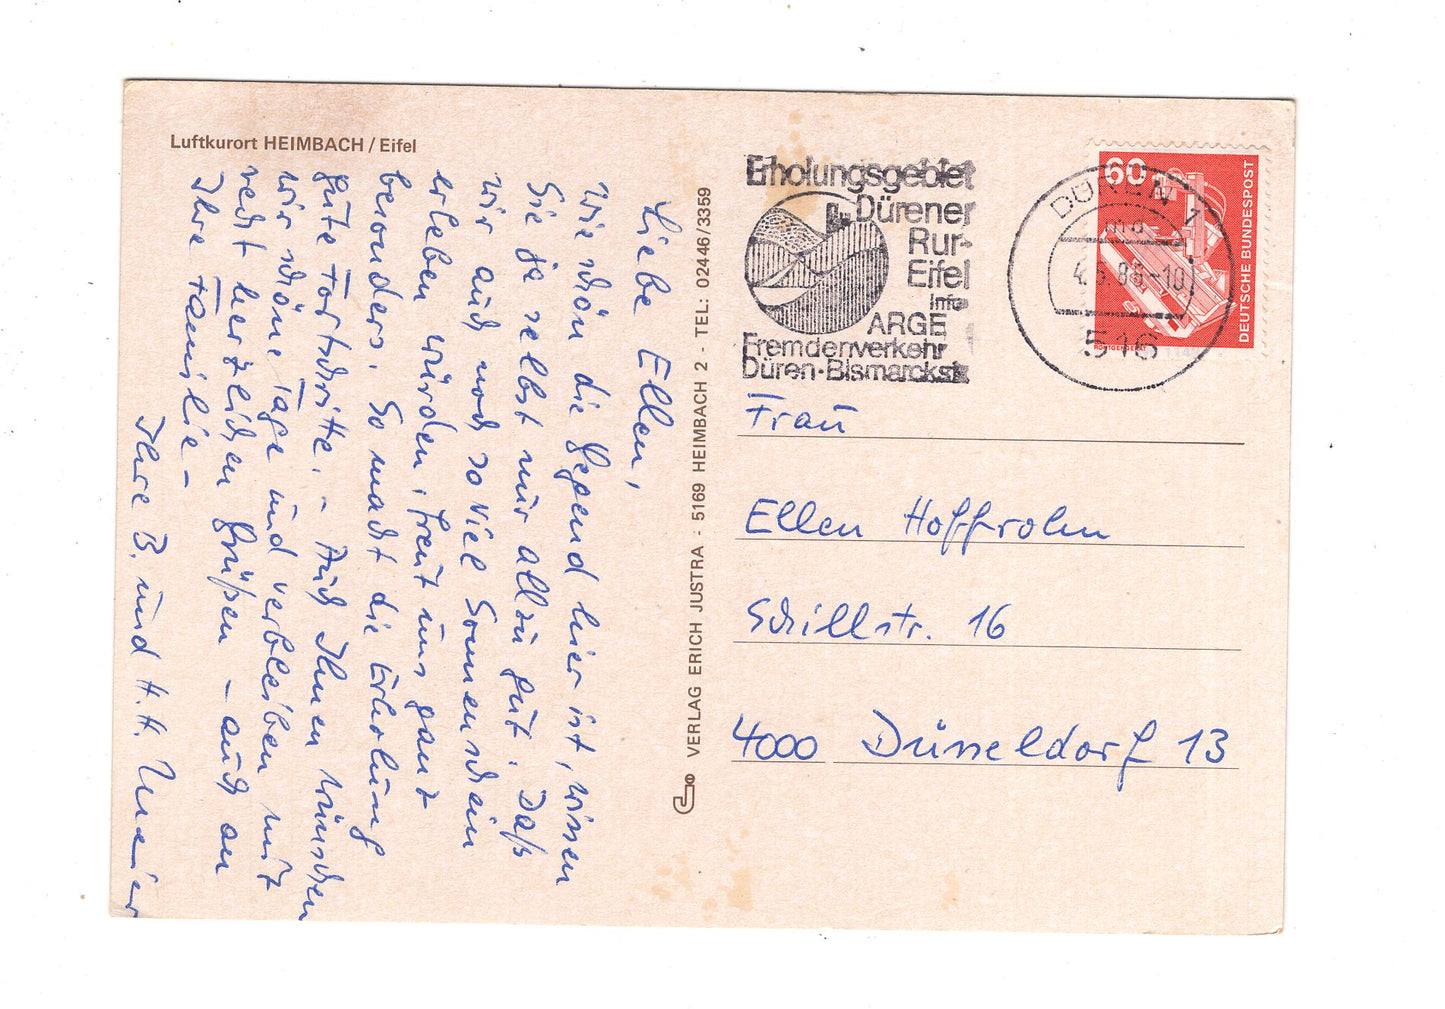 Luftkurort HEIMBACH / Eifel
Liebe Ellen,
wie schön die Gegend hier ist, wissen
Sie ja selbst nur allzu gut. Daß
wir auch noch so viel Sonnenschein
erleben würden, freut uns ganz
besonders. So macht die Erholung
gute Fortschritte. – Auch Ihnen wünschen
wir schöne Tage und verbleiben mit
recht herzlichen Grüßen – auch an
Ihre Familie –
Ihre B. und H.H. Meier
VERLAG ERICH JUSTRA - 5169 HEIMBACH 2 - TEL: 02446/3359
Erholungsgebiet
Dürener
Rur-
Eifel
Info
ARGE
Fremdenverkehr
Düren·Bismarckstr.
DÜREN 1
ma
4.6.85-10
516
60
DEUTSCHE BUNDESPOST
Frau
Ellen Hoffrohn
Schillstr. 16
4000 Düsseldorf 13